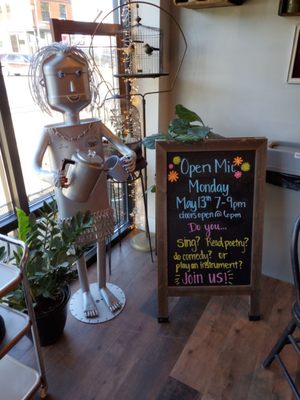 Open Mic
Monday
May 13th 7-9pm
doors open @ 6pm
Do you...
Sing? Read poetry?
do comedy? or
play an instrument?
Join us!